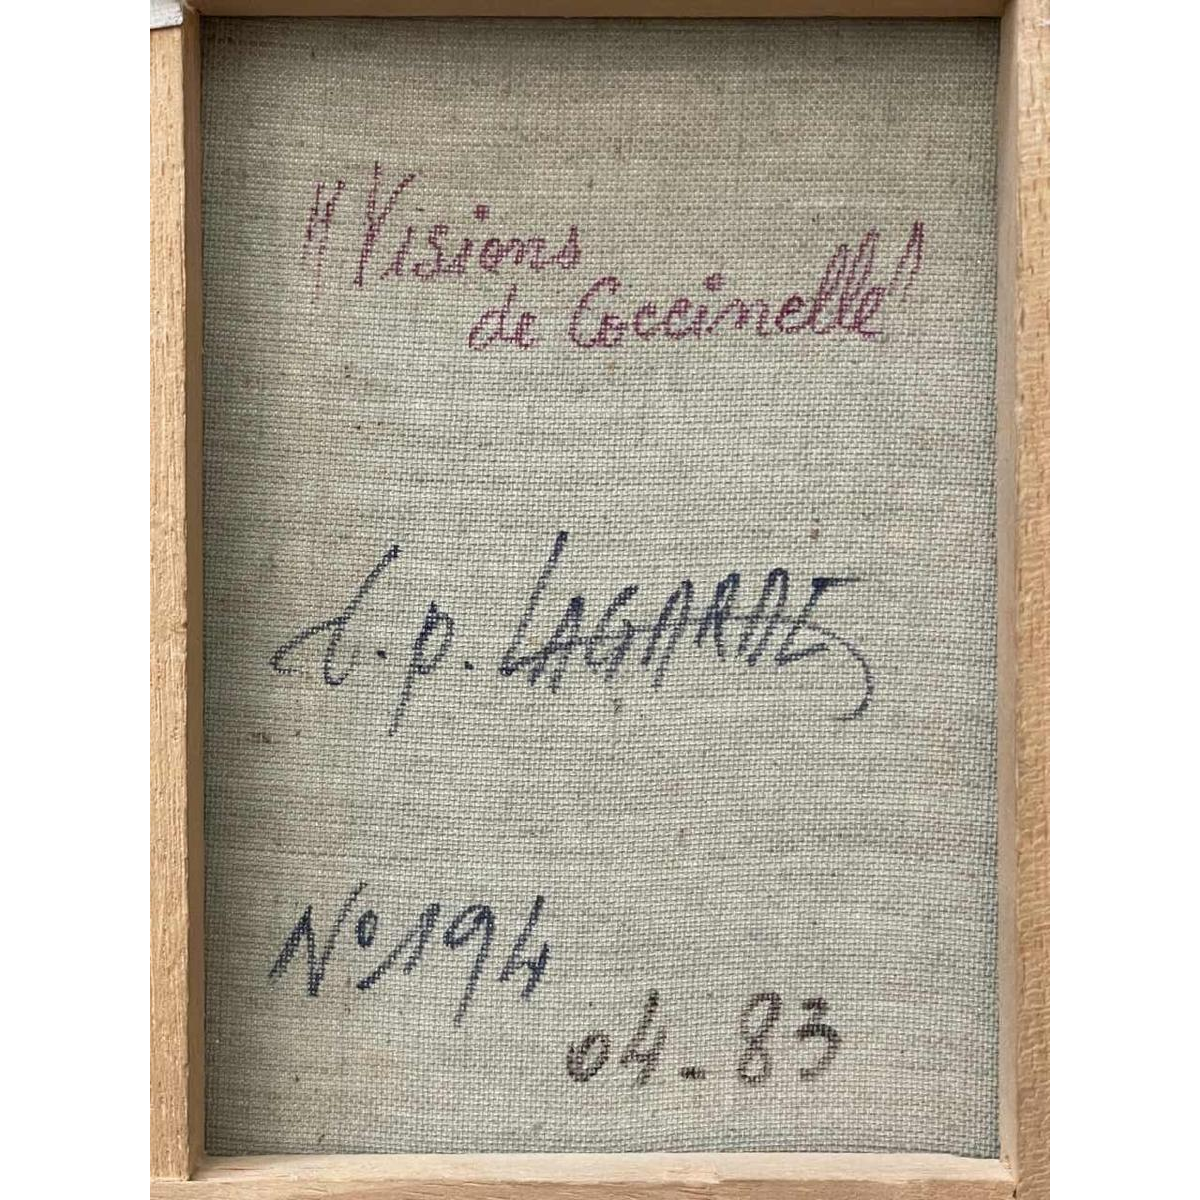 "Visions
de Coccinelle"
J.p. LAGARDE
N° 194
04-83